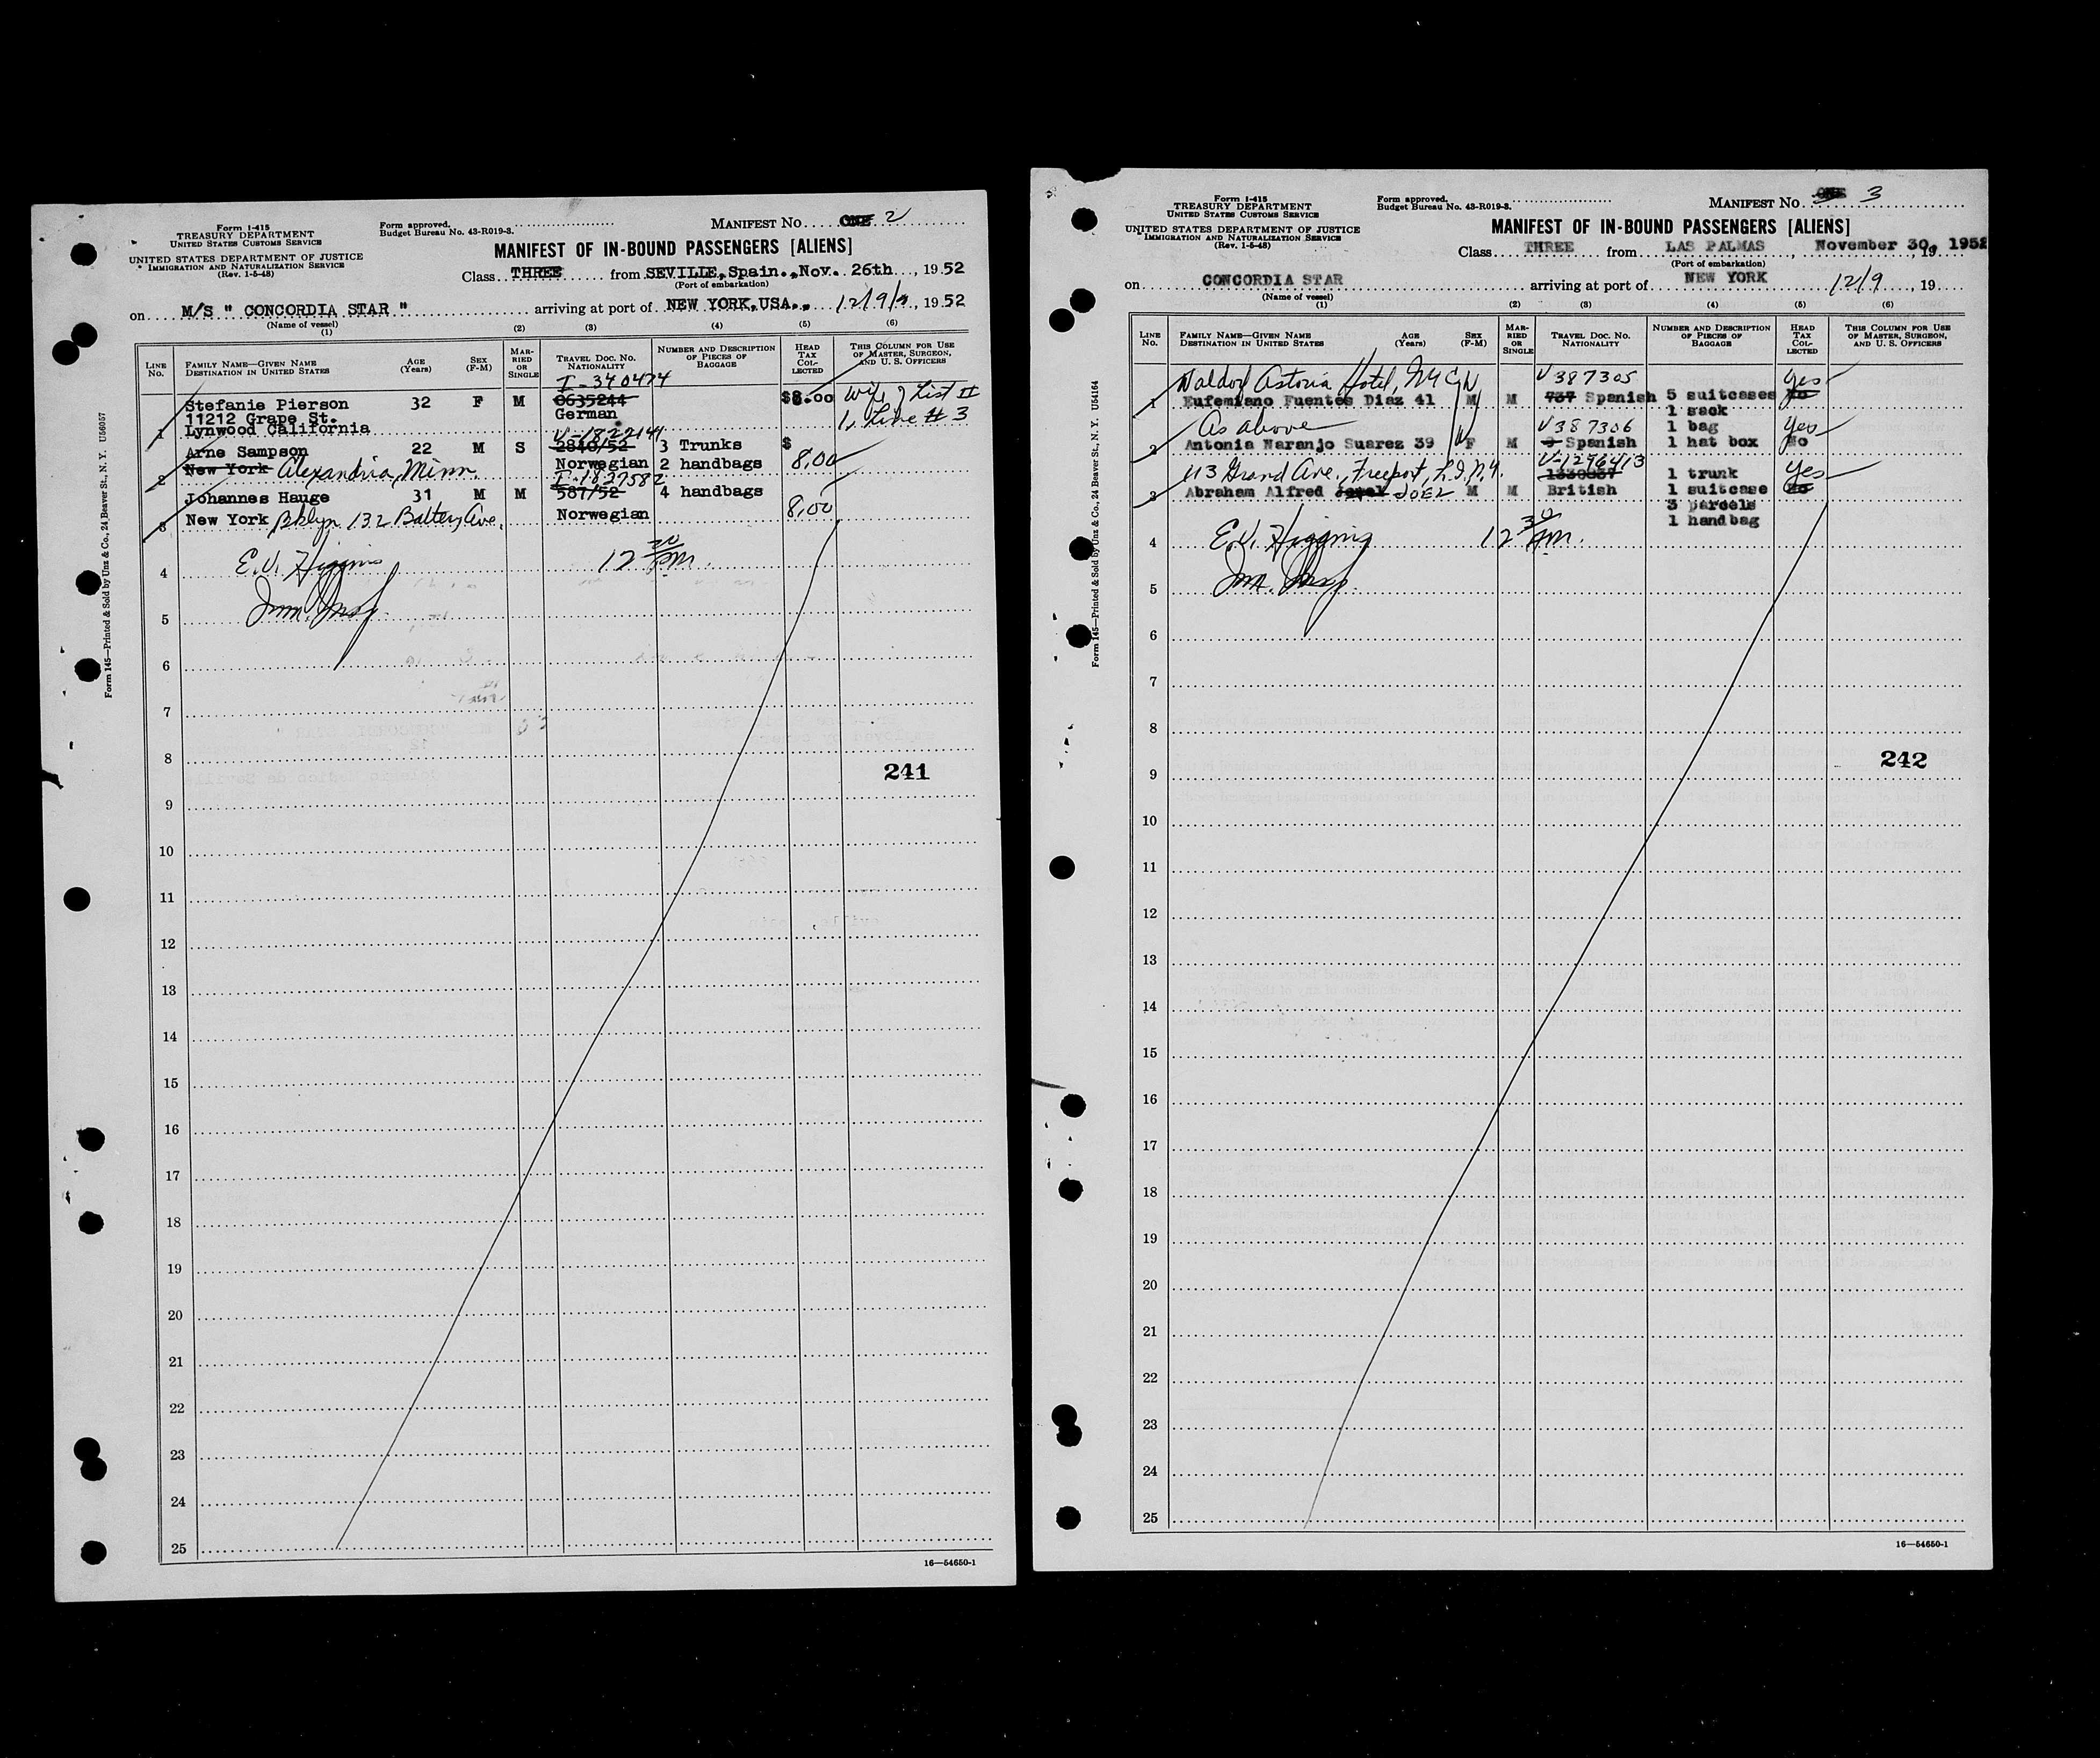 Form I-415
TREASURY DEPARTMENT
UNITED STATES CUSTOMS SERVICE
UNITED STATES DEPARTMENT OF JUSTICE
IMMIGRATION AND NATURALIZATION SERVICE
(Rev. 1-5-48)
Form approved.
Budget Bureau No. 43-R019-3.
MANIFEST No. ONE 2
MANIFEST OF IN-BOUND PASSENGERS [ALIENS]
Class THREE from SEVILLE, Spain., Nov. 26th, 19 52
(Port of embarkation)
on M/S " CONCORDIA STAR " arriving at port of NEW YORK, USA., 12/9/, 19 52
(Name of vessel)
(1) (2) (3) (4) (5) (6)
LINE No. FAMILY NAME—GIVEN NAME DESTINATION IN UNITED STATES AGE (Years) SEX (F-M) MARRIED OR SINGLE TRAVEL DOC. NO. NATIONALITY NUMBER AND DESCRIPTION OF PIECES OF BAGGAGE HEAD TAX COLLECTED THIS COLUMN FOR USE OF MASTER, SURGEON, AND U. S. OFFICERS
I-340474
Stefanie Pierson 32 F M 0635244 $8.00 Wife of List II
11212 Grape St. German 1, Line # 3
1 Lynwood California
V-1822141
Arne Sampson 22 M S 2840/52 3 Trunks $
2 New York Alexandria, Minn. Norwegian 2 handbags 8,00
I-1827582
Johannes Hauge 31 M M 587/52 4 handbags
3 New York Bklyn 132 Battery Ave. Norwegian 8,00
4 E.V. Higgins 12 30 PM.
5 Imm. Insp.
6
7
8
241
9
10
11
12
13
14
15
16
17
18
19
20
21
22
23
24
25
16—54650-1
Form 145—Printed & Sold by Unz & Co., 24 Beaver St., N. Y. U56057
Form I-415
TREASURY DEPARTMENT
UNITED STATES CUSTOMS SERVICE
UNITED STATES DEPARTMENT OF JUSTICE
IMMIGRATION AND NATURALIZATION SERVICE
(Rev. 1-5-48)
Form approved.
Budget Bureau No. 43-R019-3.
MANIFEST No. ONE 3
MANIFEST OF IN-BOUND PASSENGERS [ALIENS]
Class THREE from LAS PALMAS, November 30, 1952, 19
(Port of embarkation)
on CONCORDIA STAR arriving at port of NEW YORK 12/9, 19
(Name of vessel)
(1) (2) (3) (4) (5) (6)
LINE No. FAMILY NAME—GIVEN NAME DESTINATION IN UNITED STATES AGE (Years) SEX (F-M) MARRIED OR SINGLE TRAVEL DOC. NO. NATIONALITY NUMBER AND DESCRIPTION OF PIECES OF BAGGAGE HEAD TAX COLLECTED THIS COLUMN FOR USE OF MASTER, SURGEON, AND U. S. OFFICERS
Waldorf Astoria Hotel, NYC V 387305 Yes
1 Eufemiano Fuentes Diaz 41 M M 737 Spanish 5 suitcases No
1 sack
As above V 387306 1 bag Yes
2 Antonia Naranjo Suarez 39 F M Spanish 1 hat box No
V-1296413
113 Grand Ave., Freeport, L.I. N.Y. 1330837 1 trunk Yes
3 Abraham Alfred JOEL M M British 1 suitcase No
3 parcels
1 handbag
4 E.V. Higgins 12 30 PM.
5 Imm. Insp.
6
7
8
242
9
10
11
12
13
14
15
16
17
18
19
20
21
22
23
24
25
16—54650-1
Form 145—Printed & Sold by Unz & Co., 24 Beaver St., N. Y. U54164